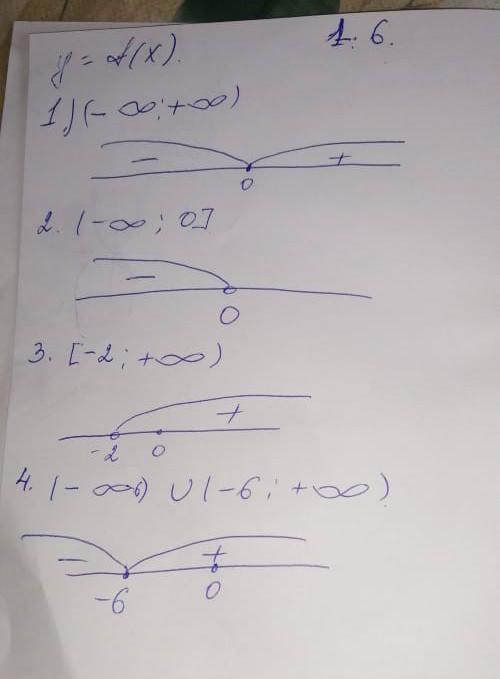 1. 6.
y = f(x).
1.) (-∞; +∞)
- +
0
2. (-∞; 0]
-
0
3. [-2; +∞)
+
-2 0
4. (-∞6) ∪ (-6; +∞)
- +
-6 0